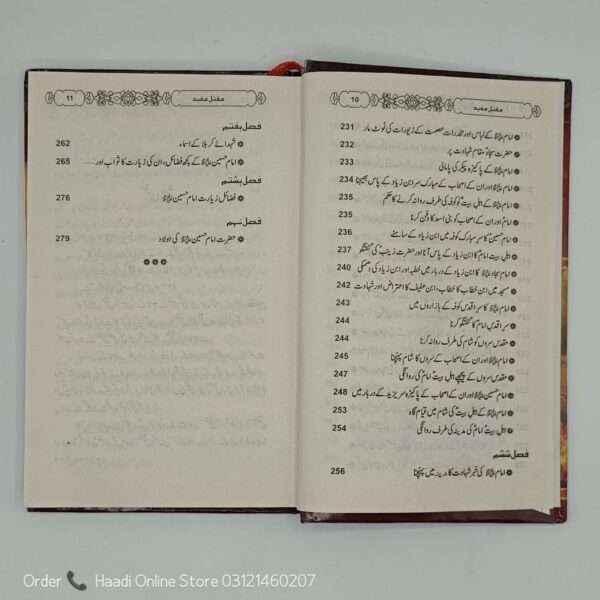 10
مقتل مفید
امام علیہ السلام کے لباس اور مخدرات عصمت کے زیورات کی لوٹ مار 231
حضرت سجاد مقام شہادت پر 232
امام علیہ السلام کے پاکیزہ پیکر کی پامالی 233
امام علیہ السلام اور ان کے اصحاب کے مبارک سر ابن زیاد کے پاس بھیجنا 234
امام علیہ السلام کے اہل بیت کو کوفہ کی طرف روانہ کرنے کا حکم 235
امام اور ان کے اصحاب کو بنی اسد کا دفن کرنا 235
امام حسین کا سر مبارک کوفہ میں ابن زیاد کے سامنے 236
اہل بیت امام کا ابن زیاد کے پاس آنا اور حضرت زینب کی گفتگو 237
امام سجاد علیہ السلام کا ابن زیاد کے دربار میں خطبہ اور ابن زیاد کی دھمکی 240
مسجد میں ابن خطاب کا خطاب، ابن عفیف کا اعتراض اور شہادت 242
امام علیہ السلام کا سر اقدس کوفہ کے بازاروں میں 243
سر اقدس امام کا گفتگو کرنا 244
مقدس سروں کو شام کی طرف روانہ کرنا 244
امام علیہ السلام اور ان کے اصحاب کے سروں کا شام پہنچنا 245
مقدس سروں کے پیچھے اہل بیت امام کی روانگی 247
امام حسین علیہ السلام اور ان کے اصحاب کے پاکیزہ سر یزید کے دربار میں 248
امام علیہ السلام کے اہل بیت کی شام میں قیام گاہ 253
اہل بیت امام کی مدینہ کی طرف روانگی 254
فصل ششم
امام علیہ السلام کی خبر شہادت کا مدینہ میں پہنچنا 256
11
مقتل مفید
فصل ہفتم
شہدائے کربلا کے اسماء 262
امام حسین علیہ السلام کے کچھ فضائل، ان کی زیارت کا ثواب اور... 265
فصل ہشتم
فضائل زیارت امام حسین علیہ السلام 276
فصل نہم
حضرت امام حسین علیہ السلام کی اولاد 279
Order Haadi Online Store 03121460207